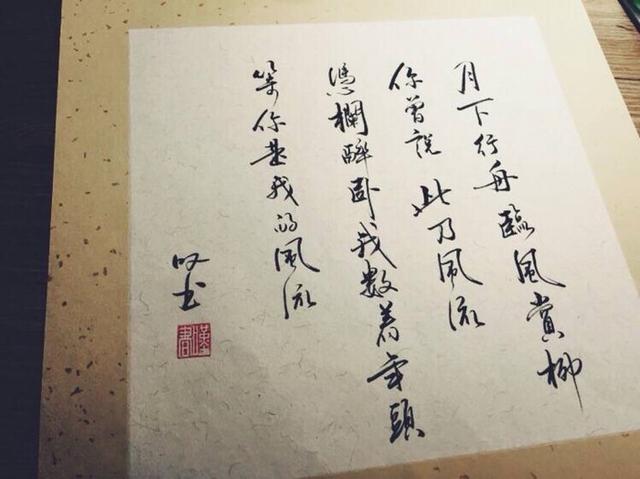 月下行舟臨風賞柳
你曾說此乃風流
憑欄醉卧我數着年頭
等你是我的風流